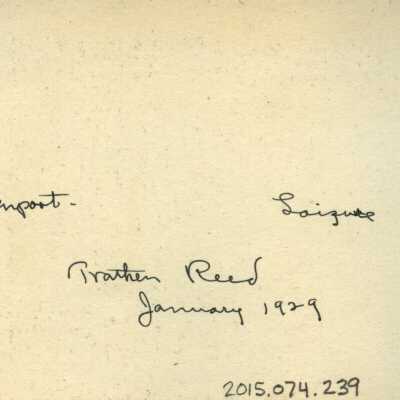 nport. Loizuxe
Trathen Reed
January 1929
2015.074.239